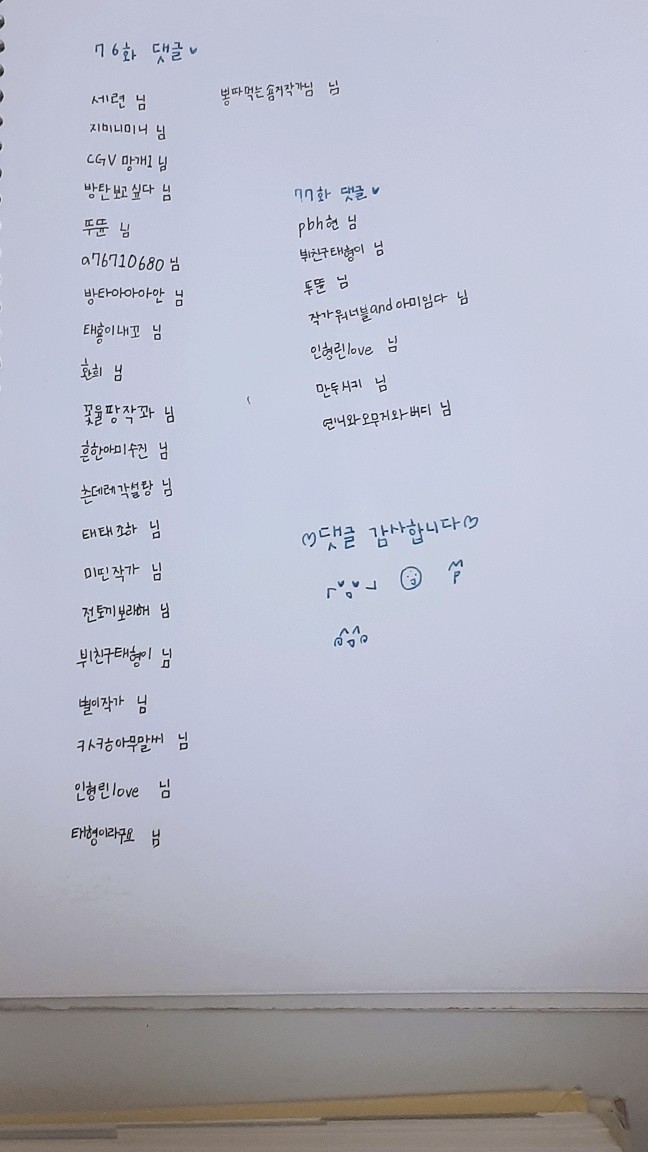 76화 댓글♥
세련 님
지미니미니 님
CGV 망개1 님
방탄보고싶다 님
뚜뚠 님
a76710680 님
방타아아아안 님
태홍이내꼬 님
환희 님
꽃율팡작꽈 님
흔한아미수진 님
츤데레각설탕 님
태태조하 님
미띤작가 님
전토끼보라해 님
뷔친구태형이 님
별이작가 님
ㅋㅅㅋㅎ아무말씨 님
인형린love 님
태형이라구요 님
뽕따먹는솜저작가님 님
77화 댓글♥
pbh현 님
뷔친구태형이 님
뚜뚠 님
작가워너블and아미임다 님
인형린love 님
만두시키 님
연니와오무지와버디 님
♡댓글 감사합니다♡